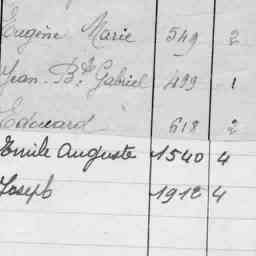 Eugène Marie 549 2
Jean-Bte Gabriel 499 1
Edouard 618 2
Emile Auguste 1540 4
Joseph 1912 4